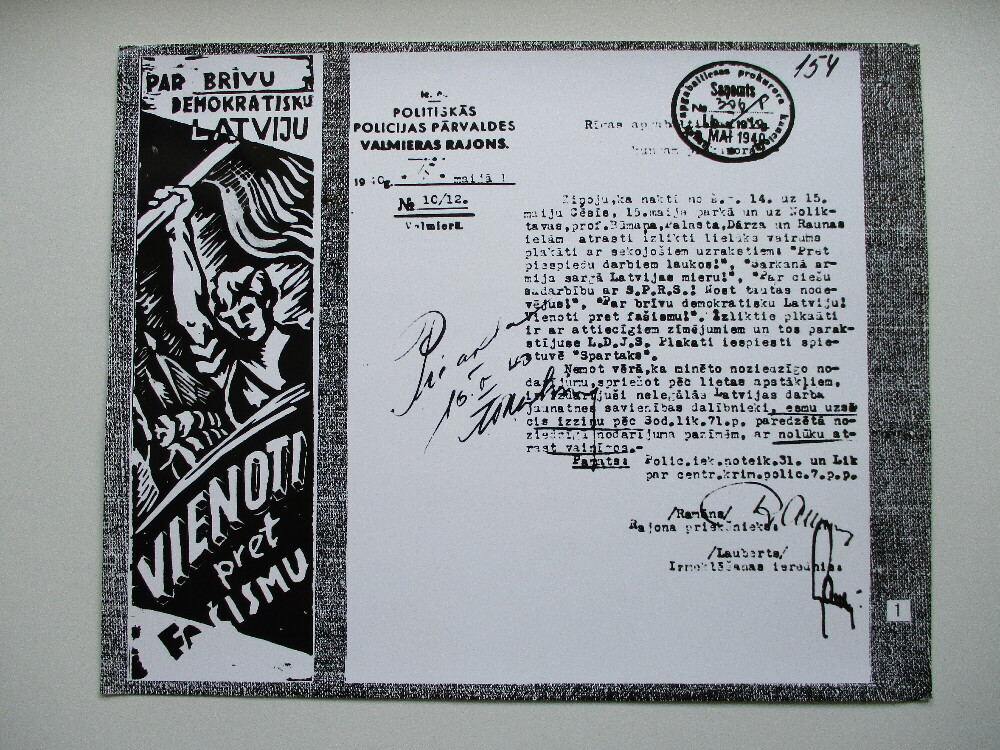 PAR BRĪVU
DEMOKRATISKU
LATVIJU
VIENOTI
pret
FAŠISMU
POLITISKĀS
POLICIJAS PĀRVALDES
VALMIERAS RAJONS.
maijā
№ 10/12.
Valmierā.
154
apgabaltiesas prokurora
Saņemts
№ 396/P
MAI 1940
Rīgas
Ziņoju, ka naktī no š.g. 14. uz 15.
maiju Cēsīs, 15.maija parkā un uz Nolik-
tavas, prof. Palasta, Dārza un Raunas
ielām atrasti izlikti lielāks vairums
plakāti ar sekojošiem uzrakstiem: "Pret
piespiedu darbiem laukos!", "Sarkanā ar-
mija sargā Latvijas mieru!", "Par ciešu
sadarbību ar S.P.R.S.! Nost tautas node-
vējus!", "Par brīvu demokratisku Latviju!
Vienoti pret fašismu!". Izliktie plkaāti
ir ar attiecīgiem zīmējumiem un tos parak-
stījuse L.D.J.S. Plakati iespiesti spie-
stuvē "Spartaks".
Ņemot vērā, ka minēto noziedzīgo no-
darījumu, spriežot pēc lietas apstākļiem,
izdarījuši nelegālās Latvijas darba
jaunatnes savienības dalībnieki, esmu uzsā-
cis izziņu pēc Sod.lik.71.p. paredzētā no-
ziedzīgā nodarījuma pazīmēm, ar nolūku at-
rast vainīgos.-
Pamats: Polic.iek.noteik.31. un Lik
par centr.krim.polic.7.p.p.
/Ramāns/
Rajona priekšnieks
/Lauberts/
Izmeklēšanas ierēdnis
1